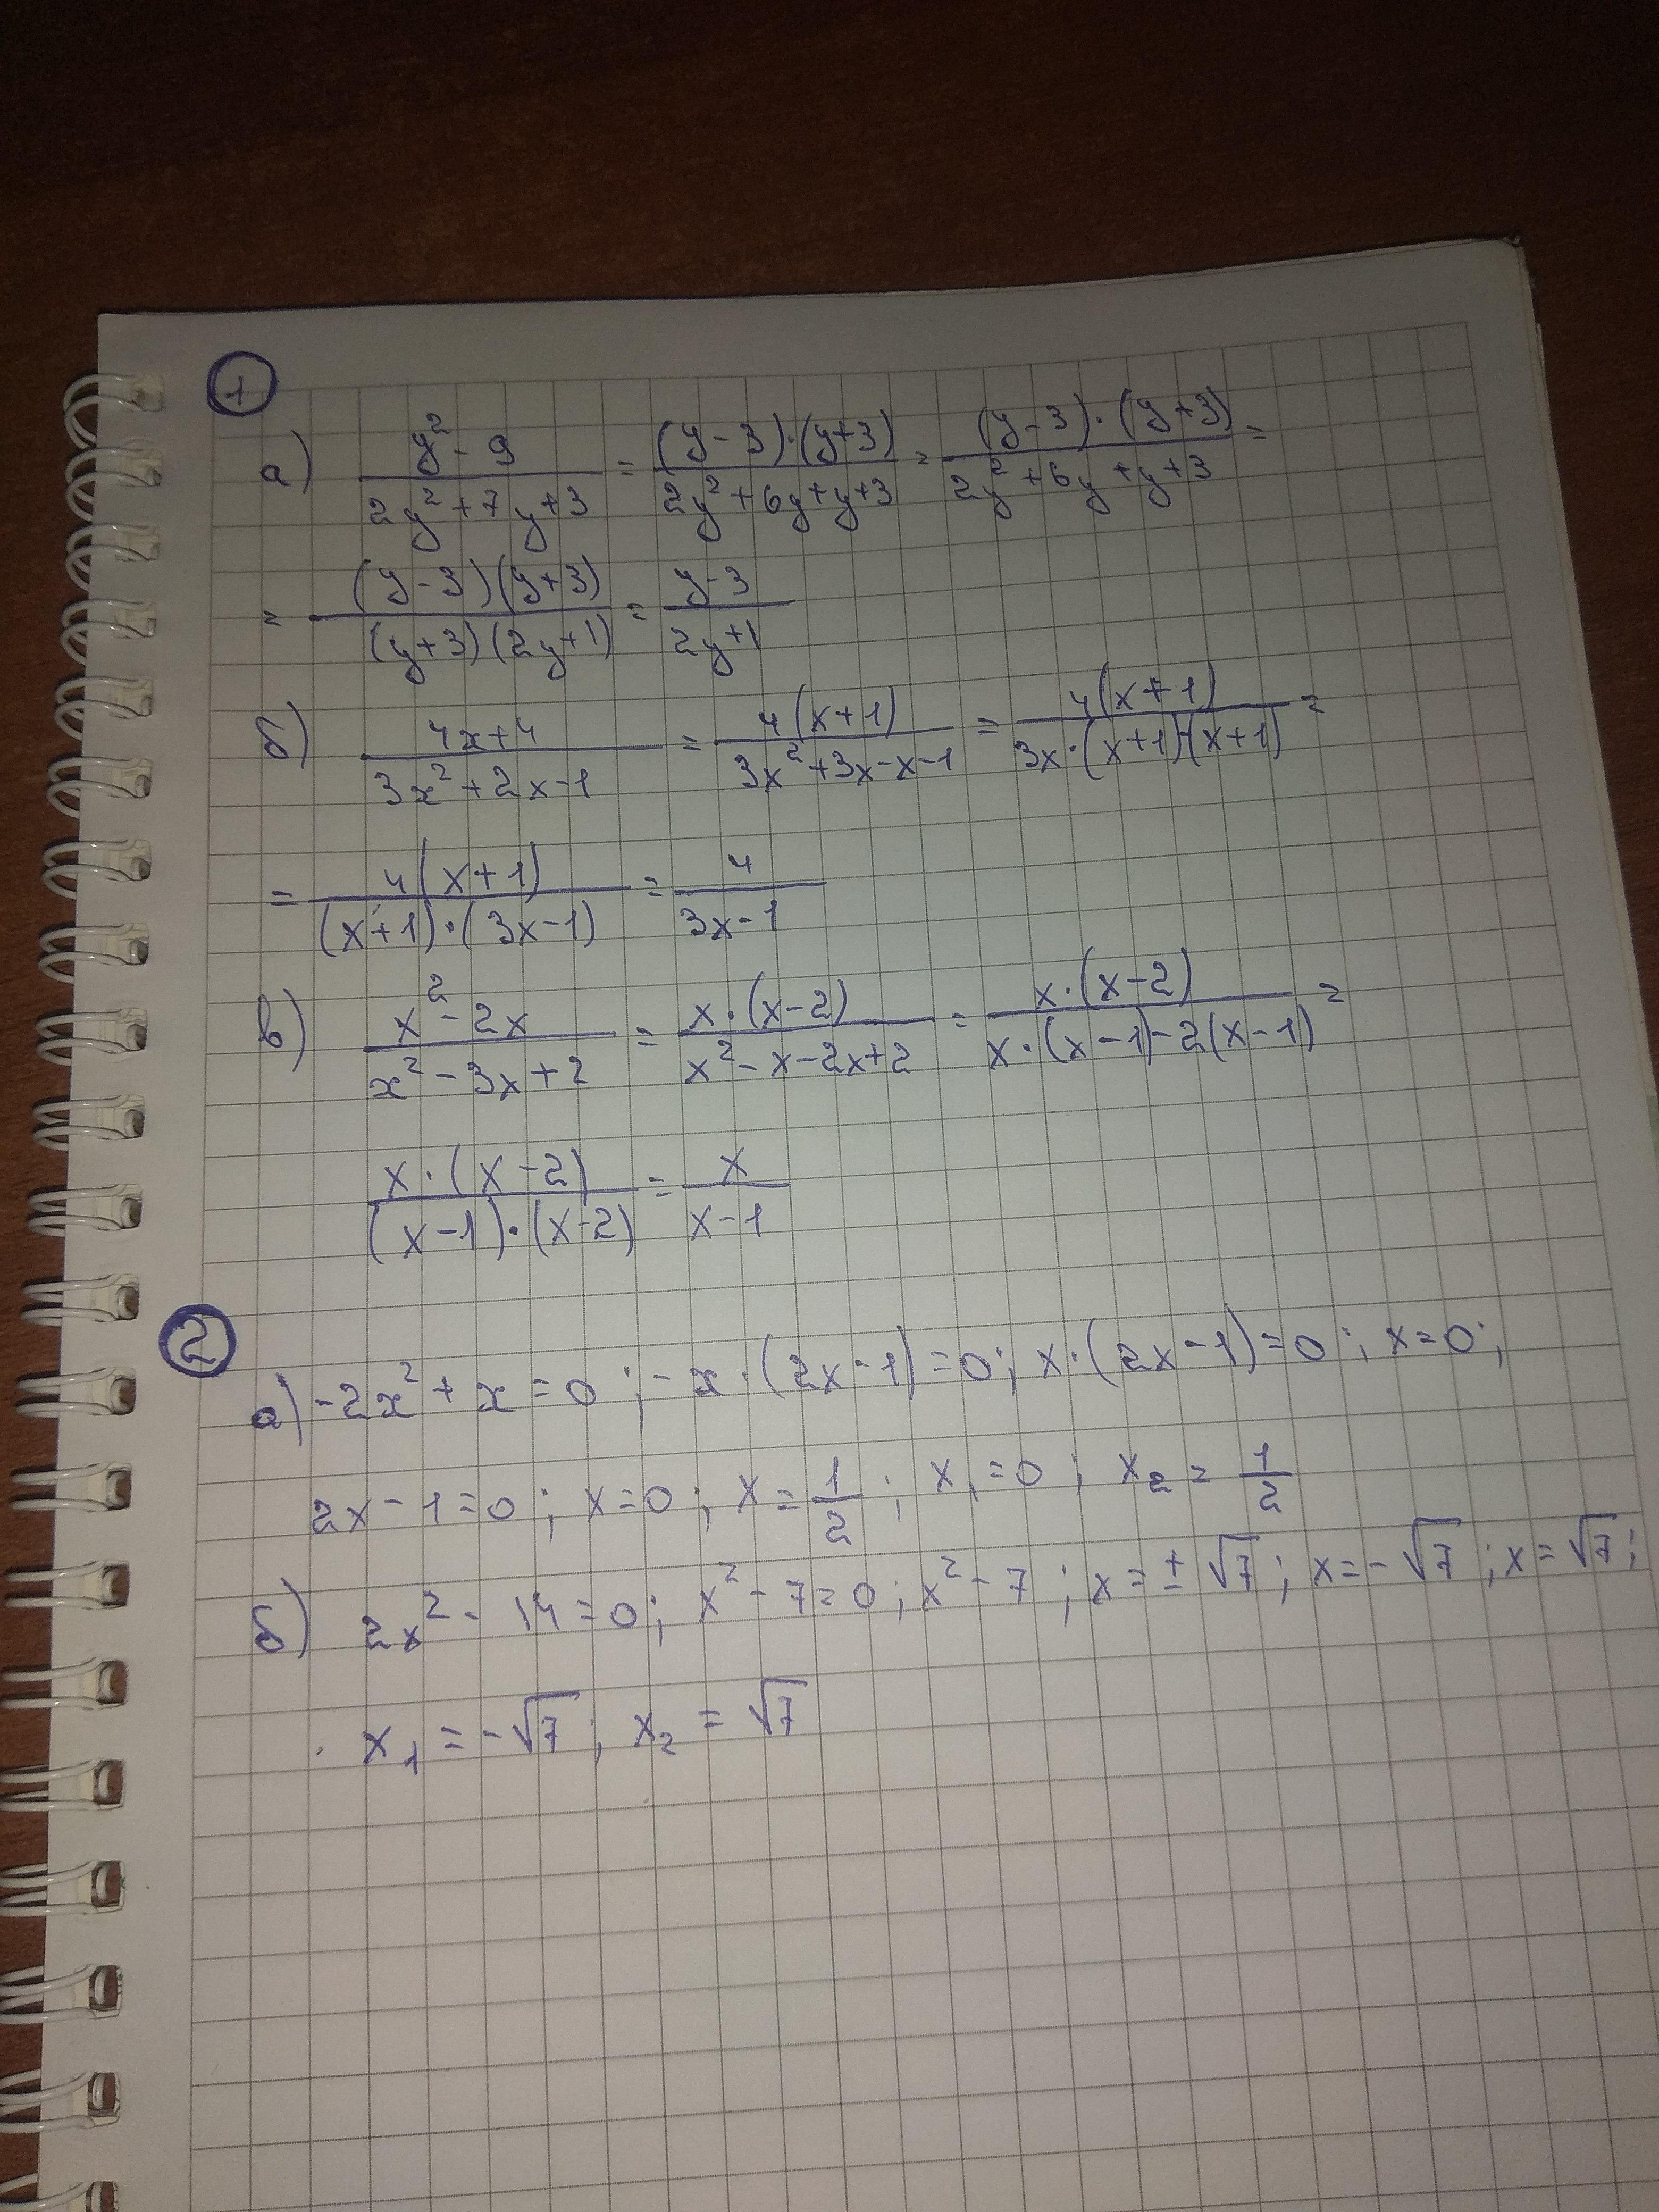 1
а) (y² - 9)/(2y² + 7y + 3) = ((y - 3)·(y + 3))/(2y² + 6y + y + 3) = ((y - 3)·(y + 3))/(2y² + 6y + y + 3) =
= ((y - 3)(y + 3))/((y + 3)(2y + 1)) = (y - 3)/(2y + 1)
б) (4x + 4)/(3x² + 2x - 1) = (4(x + 1))/(3x² + 3x - x - 1) = (4(x + 1))/(3x·(x + 1)-(x + 1)) =
= (4(x + 1))/((x + 1)·(3x - 1)) = 4/(3x - 1)
в) (x² - 2x)/(x² - 3x + 2) = (x·(x - 2))/(x² - x - 2x + 2) = (x·(x - 2))/(x·(x - 1) - 2(x - 1)) =
(x·(x - 2))/((x - 1)·(x - 2)) = x/(x - 1)
2
а) -2x² + x = 0; -x·(2x - 1) = 0; x·(2x - 1) = 0; x = 0;
2x - 1 = 0; x = 0; x = 1/2; x₁ = 0; x₂ = 1/2
б) 2x² - 14 = 0; x² - 7 = 0; x² - 7; x = ±√7; x = -√7; x = √7;
x₁ = -√7; x₂ = √7